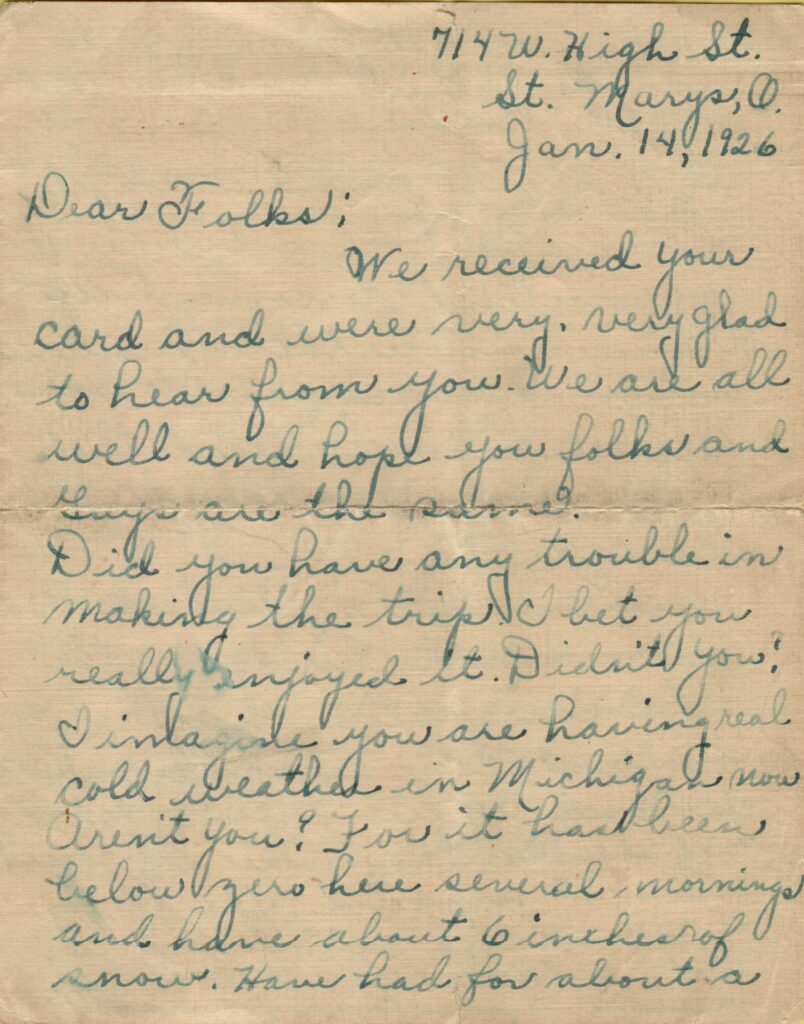 714 W. High St.
St. Marys, O.
Jan. 14, 1926
Dear Folks;
We received your
card and were very, very glad
to hear from you. We are all
well and hope you folks and
Guys are the same.
Did you have any trouble in
making the trip. I bet you
really enjoyed it. Didn't you?
I imagine you are having real
cold weather in Michigan now
Aren't you? For it has been
below zero here several mornings
and have about 6 inches of
snow. Have had for about a